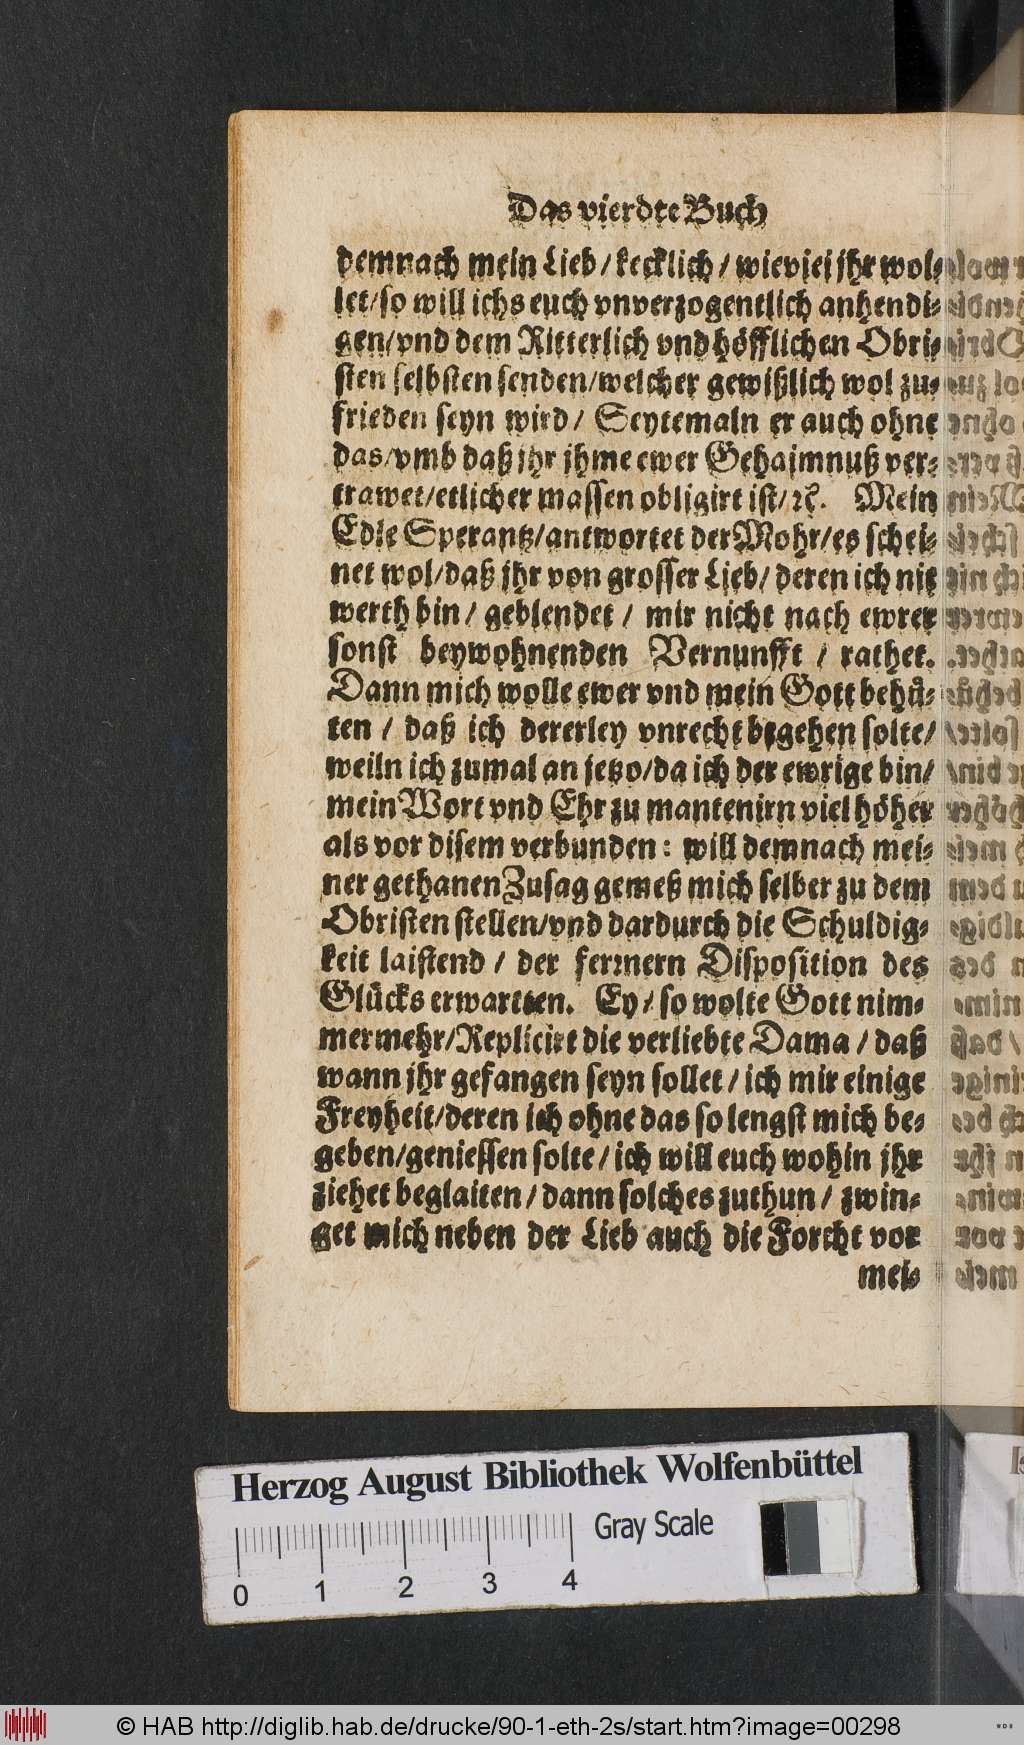 Das vierdte Buch
demnach mein Lieb / kecklich / wieviel jhr wol-
let / so will ichs euch vnverzogentlich anhendi-
gen / vnd dem Ritterlich vnd höfflichen Obri-
sten selbsten senden / welcher gewißlich wol zu-
frieden seyn wird / Seytemaln er auch ohne
das / vmb daß jhr jhme ewer Gehaimnuß ver-
trawet / etlicher massen obligirt ist / ꝛc. Mein
Edle Sperantz / antwortet der Mohr / es schei-
net wol / daß jhr von grosser Lieb / deren ich nit
werth bin / geblendet / mir nicht nach ewrer
sonst beywohnenden Vernunfft / rathet.
Dann mich wolle ewer vnd mein Gott behü-
ten / daß ich dererley vnrecht begehen solte /
weiln ich zumal an jetzo / da ich der ewrige bin /
mein Wort vnd Ehr zu mantenirn viel höher
als vor disem verbunden : will demnach mei-
ner gethanen Zusag gemeß mich selber zu dem
Obristen stellen / vnd dardurch die Schuldig-
keit laistend / der fernern Disposition des
Glücks erwarten. Ey / so wolte Gott nim-
mermehr / Replicirt die verliebte Dama / daß
wann jhr gefangen seyn sollet / ich mir einige
Freyheit / deren ich ohne das so lengst mich be-
geben / geniessen solte / ich will euch wohin jhr
ziehet beglaiten / dann solches zuthun / zwin-
get mich neben der Lieb auch die Forcht vor
mei-
Herzog August Bibliothek Wolfenbüttel
Gray Scale
0 1 2 3 4
© HAB http://diglib.hab.de/drucke/90-1-eth-2s/start.htm?image=00298